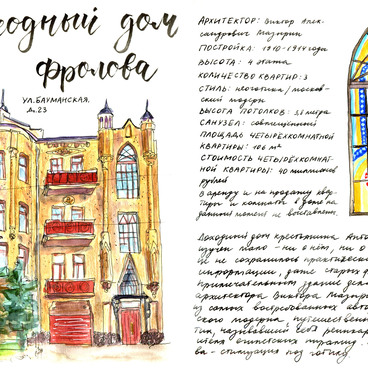 ходный дом
Фролова
ул. Бауманская,
д. 23
Архитектор: Виктор Алек-
сандрович Мазырин
Постройка: 1910-1914 года
Высота: 4 этажа
Количество квартир: 3
Стиль: неоготика/москов-
ский модерн
Высота потолков: 3,8 метра
Санузел: совмещённый
Площадь четырёхкомнатной
квартиры: 106 м²
Стоимость четырёхкомнат-
ной квартиры: 40 миллионов
рублей
В аренду и на продажу квар-
тиры и комнаты в доме на
данный момент не выставлены.
Доходный дом крестьянина Анто
изучен мало - ни о нём, ни о
це не сохранилось практически
информации, даже старых ф
примечательным здание дела
архитектора Виктора Мазыри
из самых востребованных авто
ского модерна, путешественн
тик, называвший себя реинкар
ителя египетских пирамид.
ва - стилизация под готику